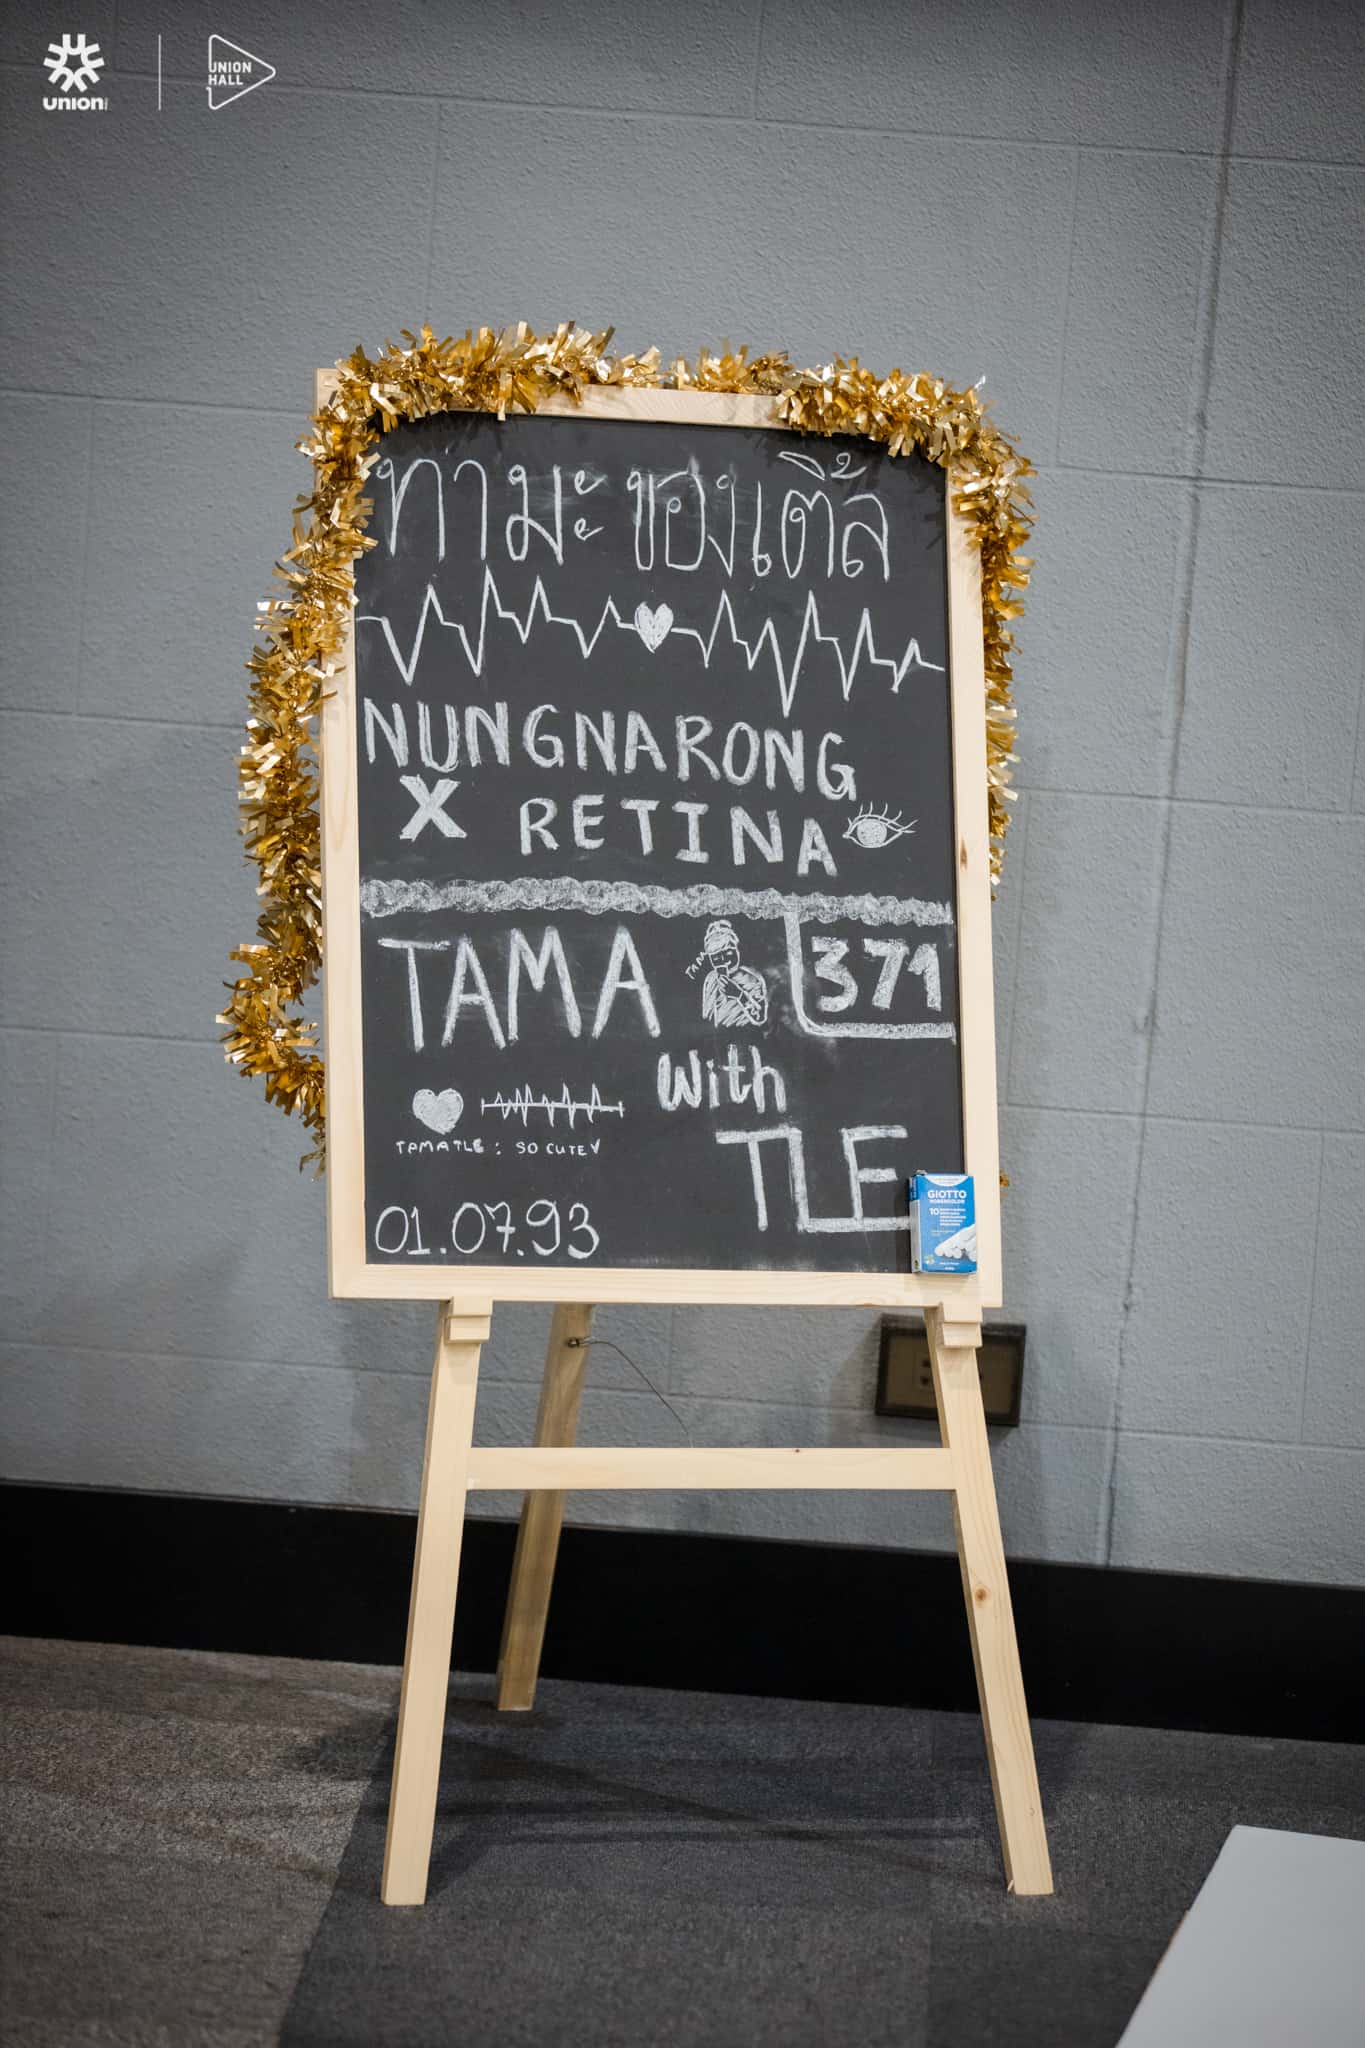 UNION
UNION
HALL
ทามะ ของเติ้ล
NUNGNARONG
X RETINA
TAMA
TAMA
371
with
TLE
TAMATLE : SO CUTE
01.07.93
GIOTTO
ROBERCOLOR
10